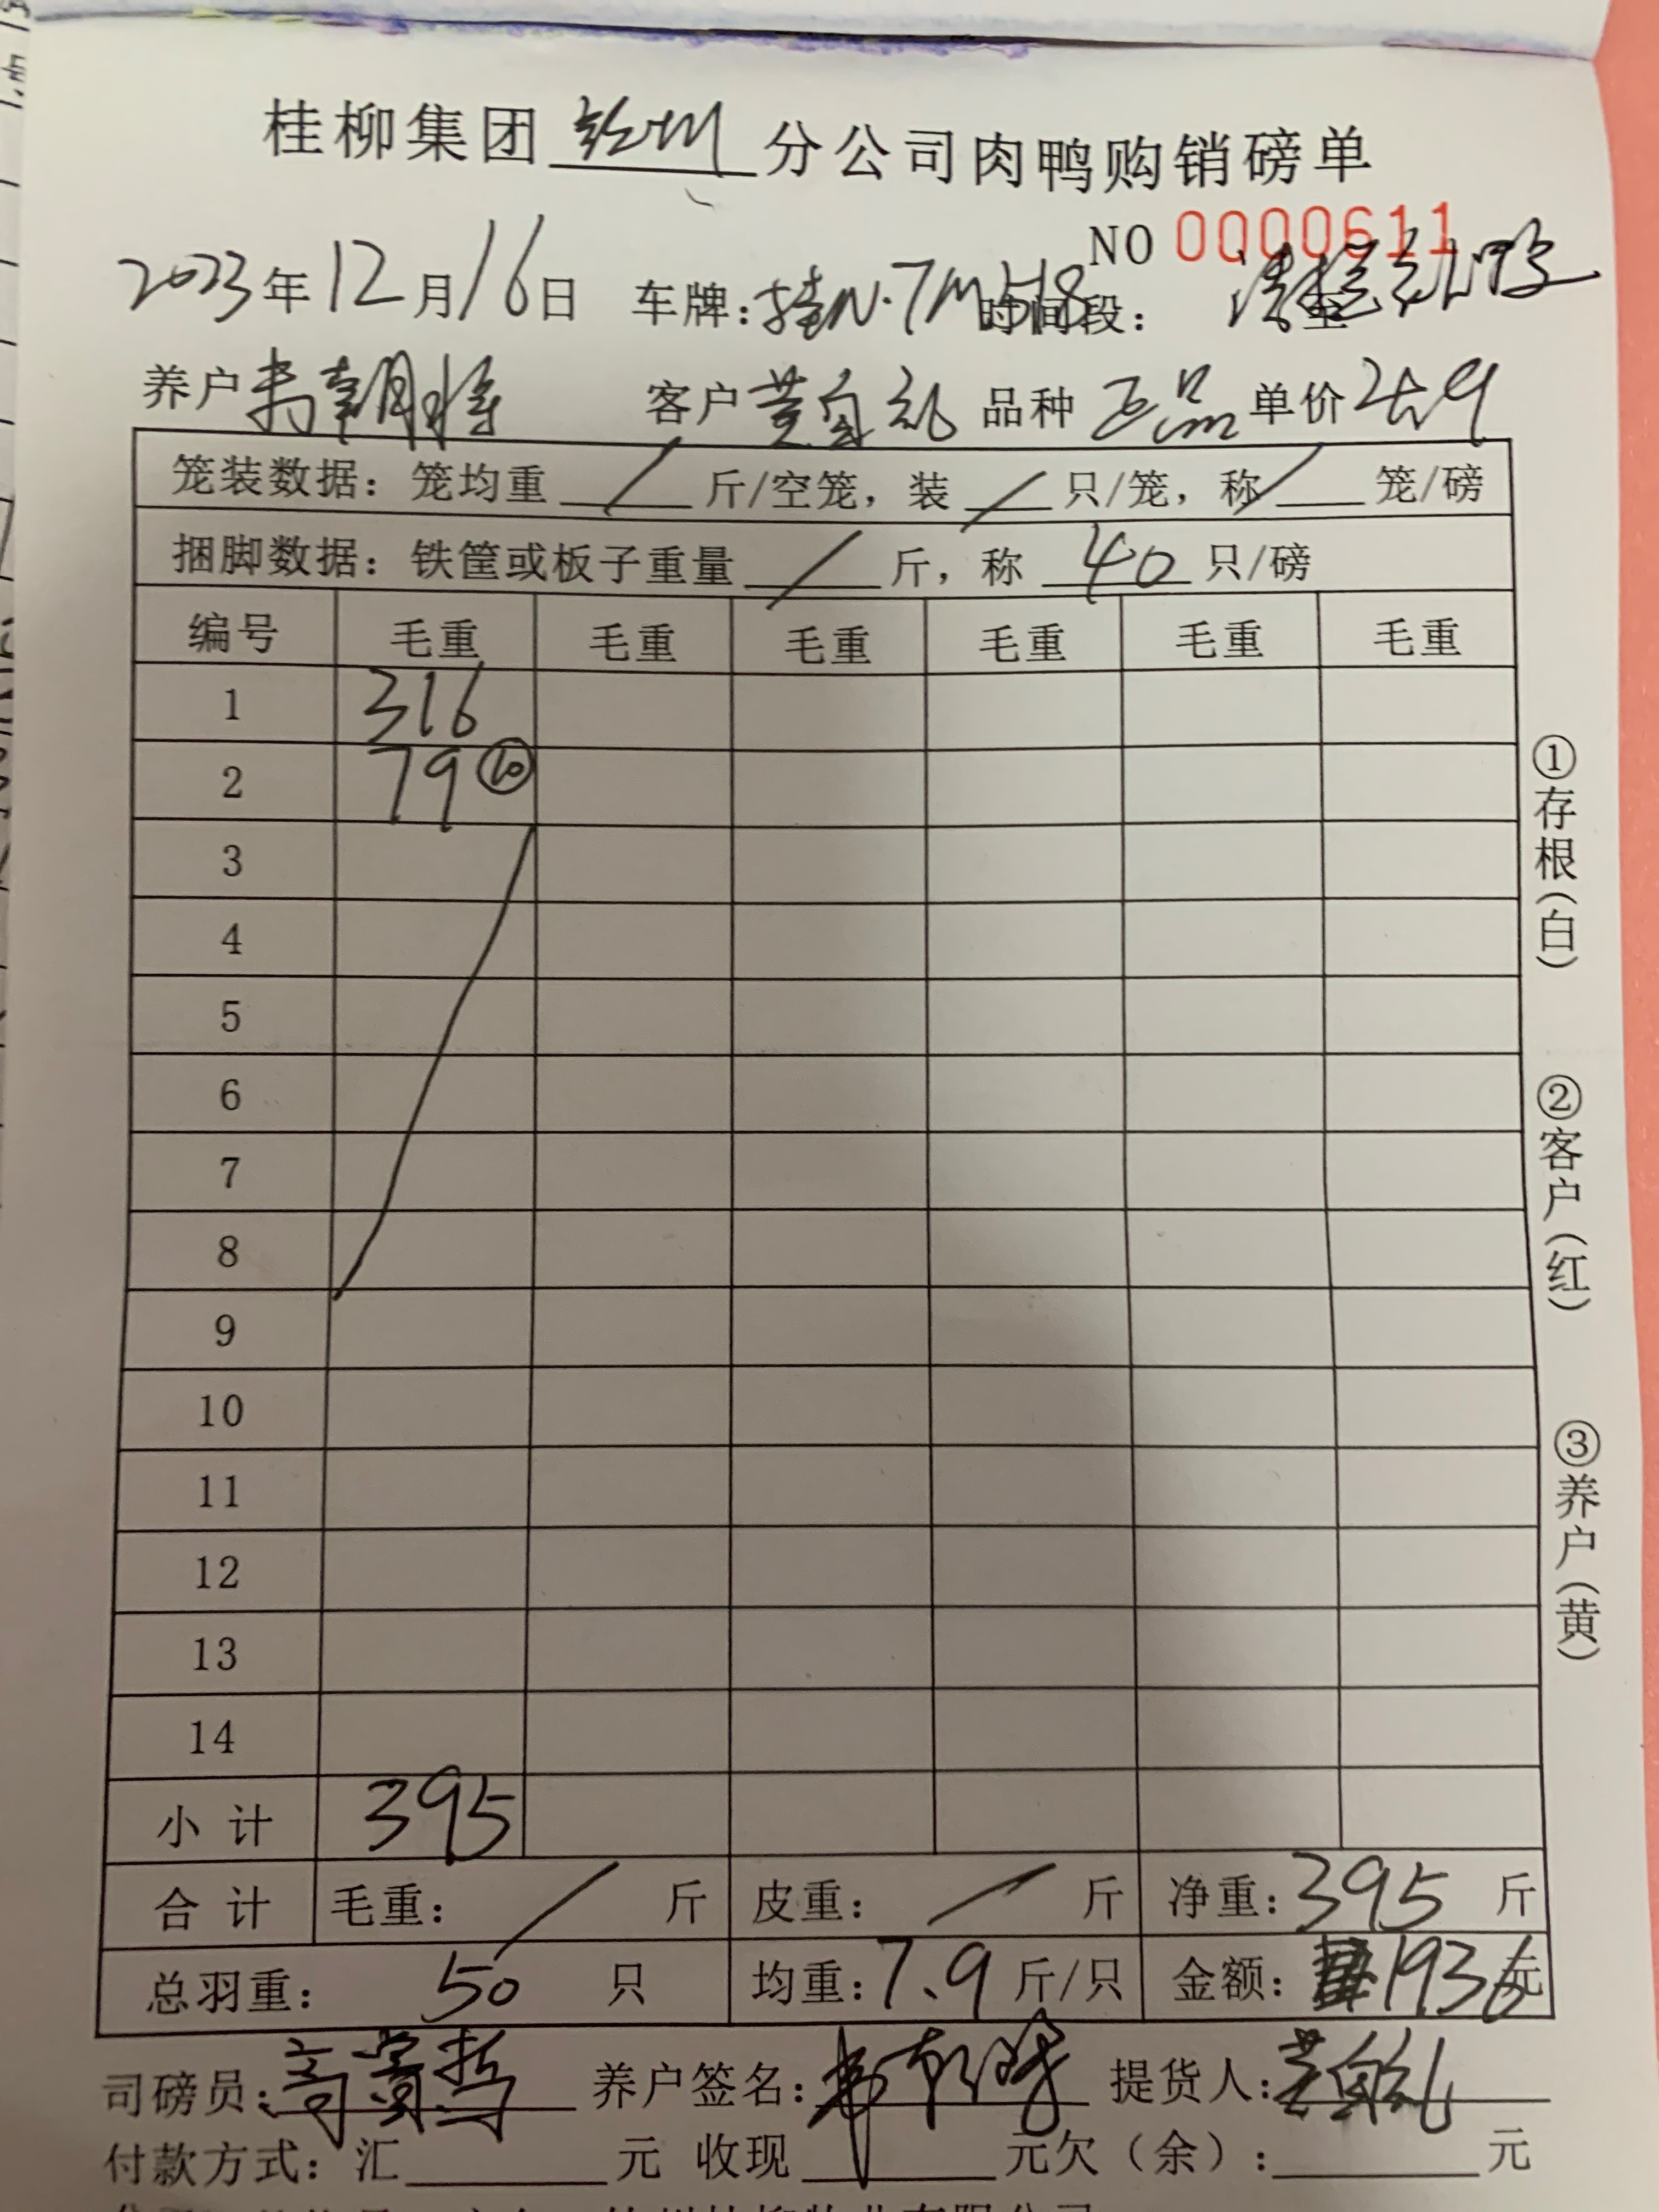 桂柳集团钦州分公司肉鸭购销磅单
NO 0000611
2023年12月16日 车牌:桂N·7M518 时间段: 至
养户韦朝将 客户黄自礼 品种正品 单价4.9
笼装数据: 笼均重 / 斤/空笼, 装 / 只/笼, 称 / 笼/磅
捆脚数据: 铁筐或板子重量 / 斤, 称 40 只/磅
编号 毛重 毛重 毛重 毛重 毛重 毛重
1 316
2 79 ⑩
3
4
5
6
7
8
9
10
11
12
13
14
小计 395
合计 毛重: / 斤 皮重: / 斤 净重: 395 斤
总羽重: 50 只 均重: 7.9 斤/只 金额: 1936元
司磅员: 养户签名: 韦朝将 提货人: 黄自礼
付款方式: 汇 元 收现 元欠(余): 元
①存根(白)
②客户(红)
③养户(黄)